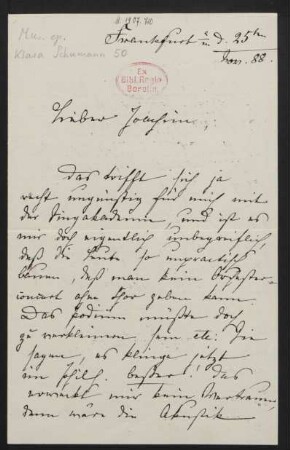 Mus. ep.
Klara Schumann 50
Frankfurt a/M d. 25ten
Nov. 88.
Ex
Bibl. Regia
Berolin.
Lieber Joachim,
das trifft sich ja
recht ungünstig für mich mit
der Singakademie, und ist es
mir doch eigentlich unbegreiflich
daß die Leute so unpractisch
bauen, daß man kein Orchester-
concert ohne Chor geben kann.
Das Podium müßte doch
zu verkleinern sein etc. Sie
sagen, es klinge jetzt
im Phil. besser! das
erweckt mir kein Vertrauen,
denn wäre die Akustik